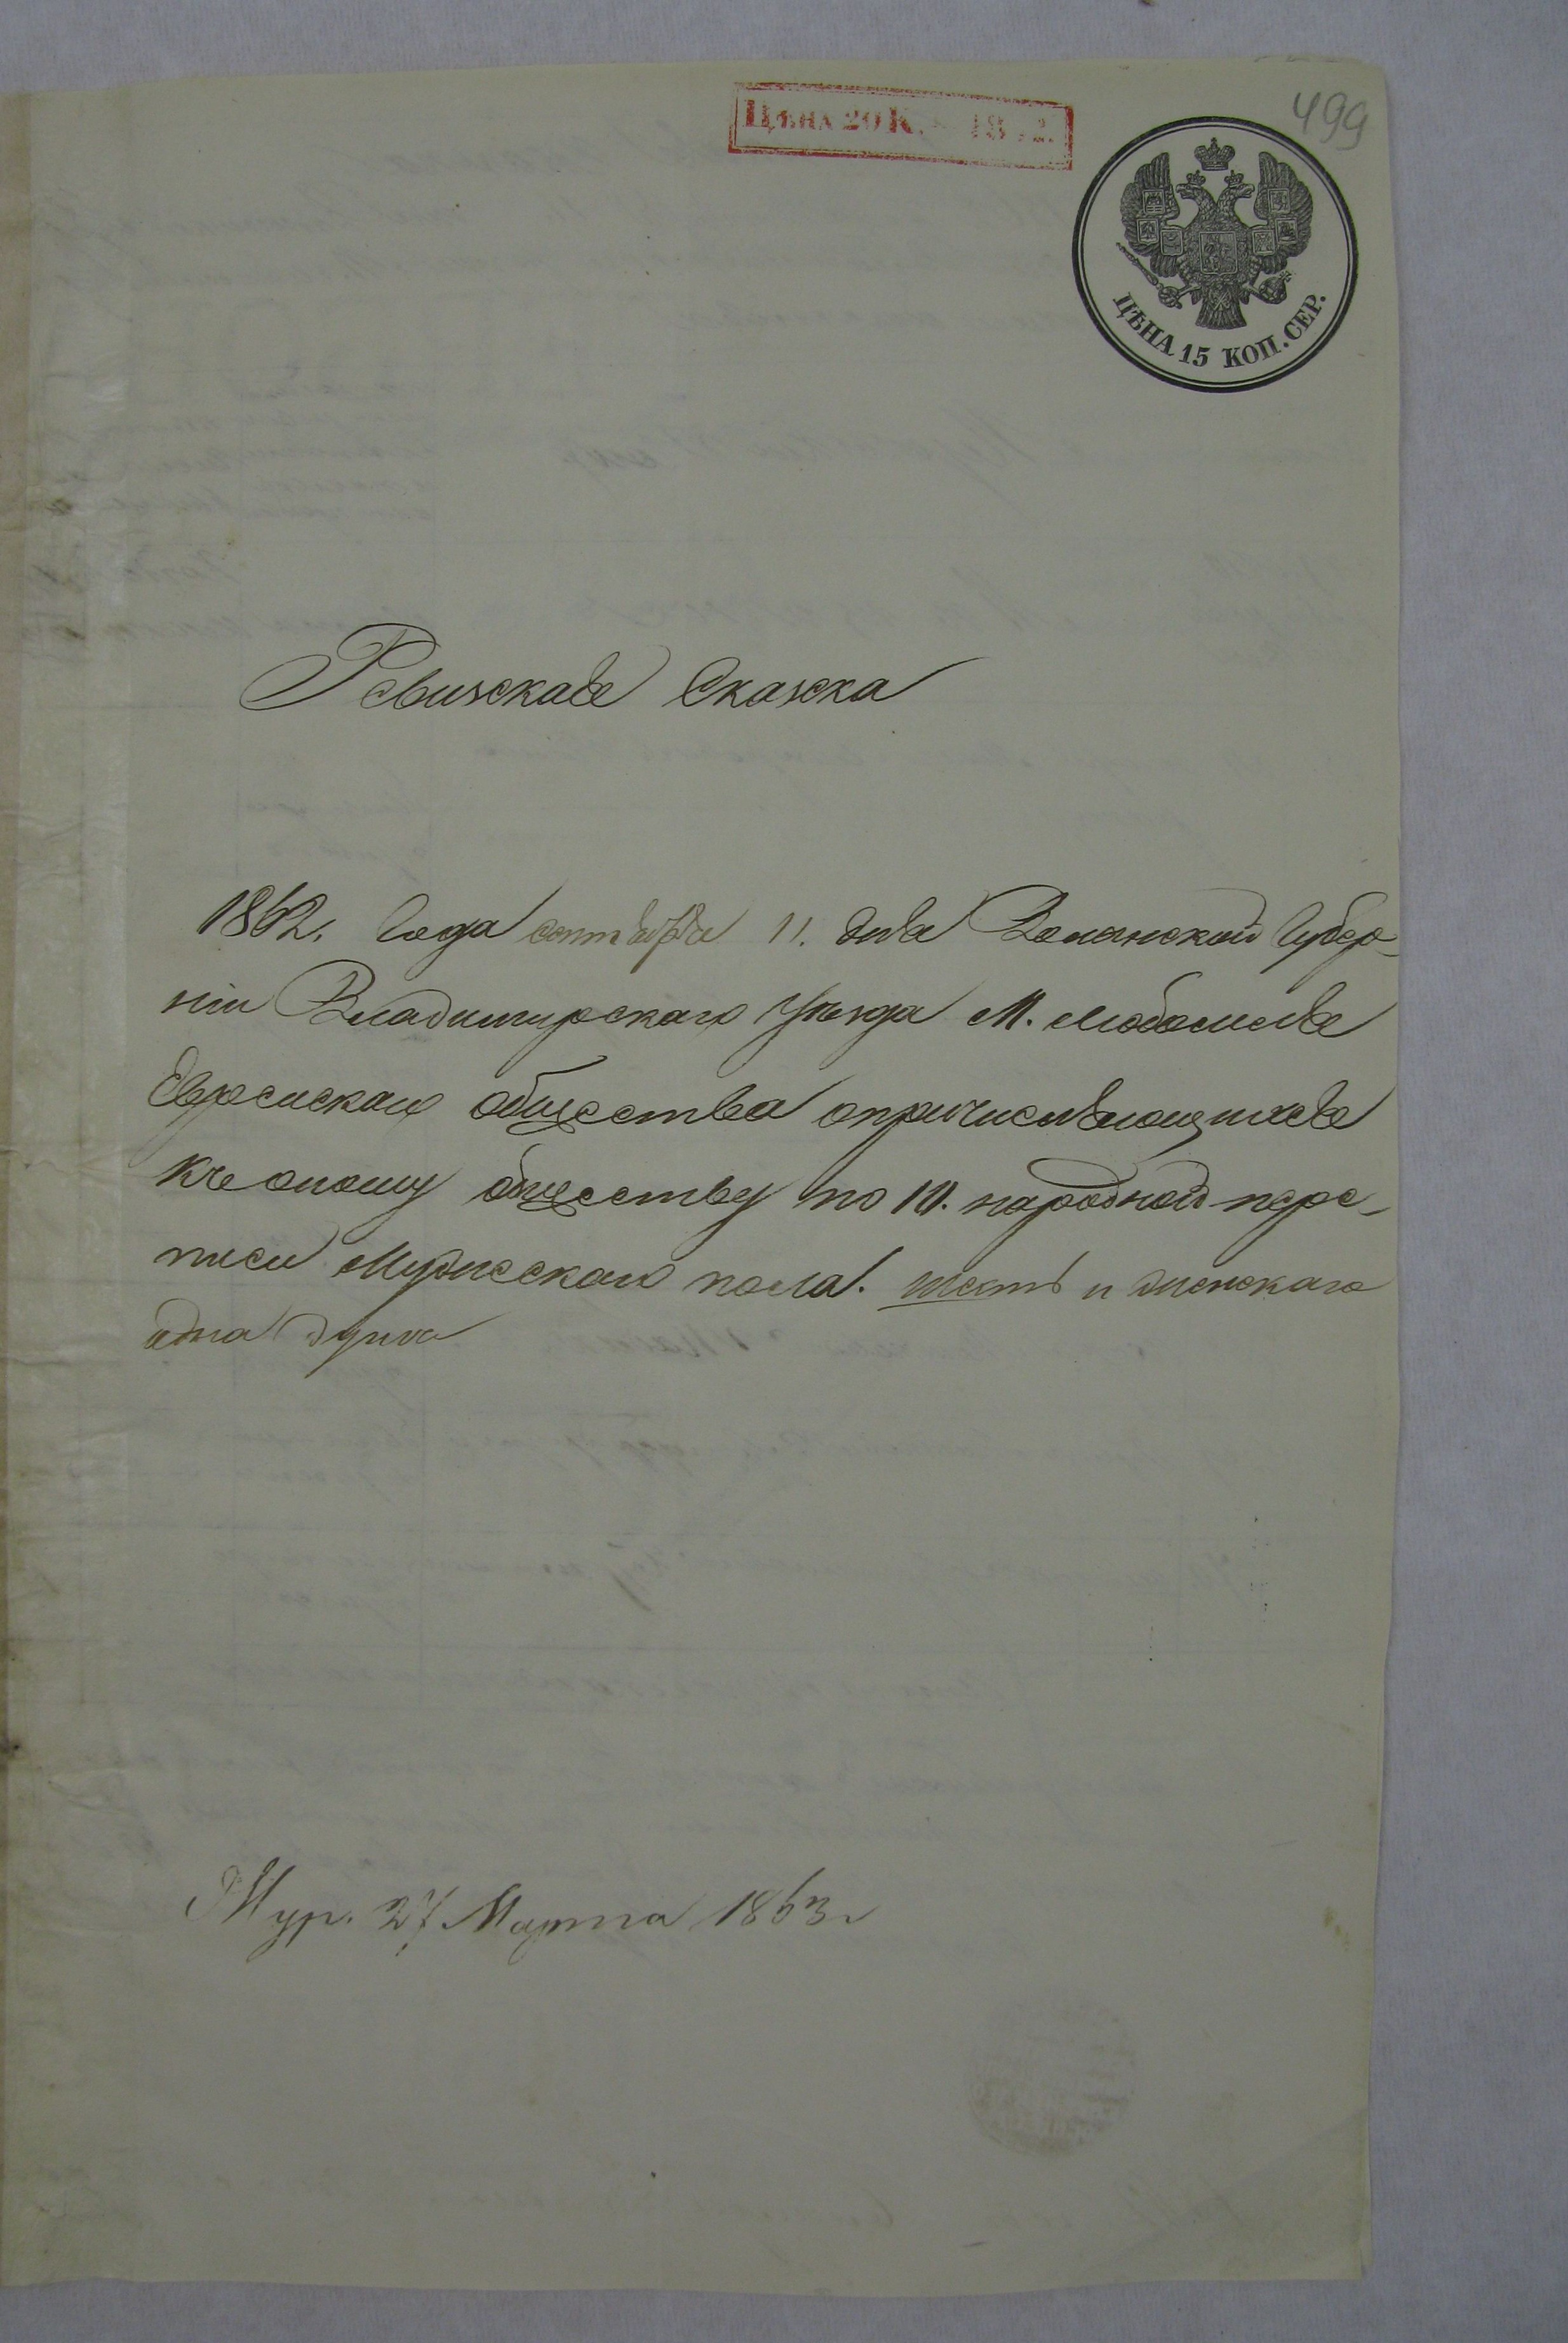 499
ЦѢНА 20 К.
ЦѢНА 15 КОП. СЕР.
Ревизская Сказка
1862. Года сентября 11. дня Волынской Губер-
ніи Владимирскаго Уѣзда М. Любомля
Еврейскаго общества опричисляющихся
къ оному обществу по 10. народной пере-
писи Мужескаго пола. шесть и женскаго
одна душа
Жур. 27 Марта 1863 г